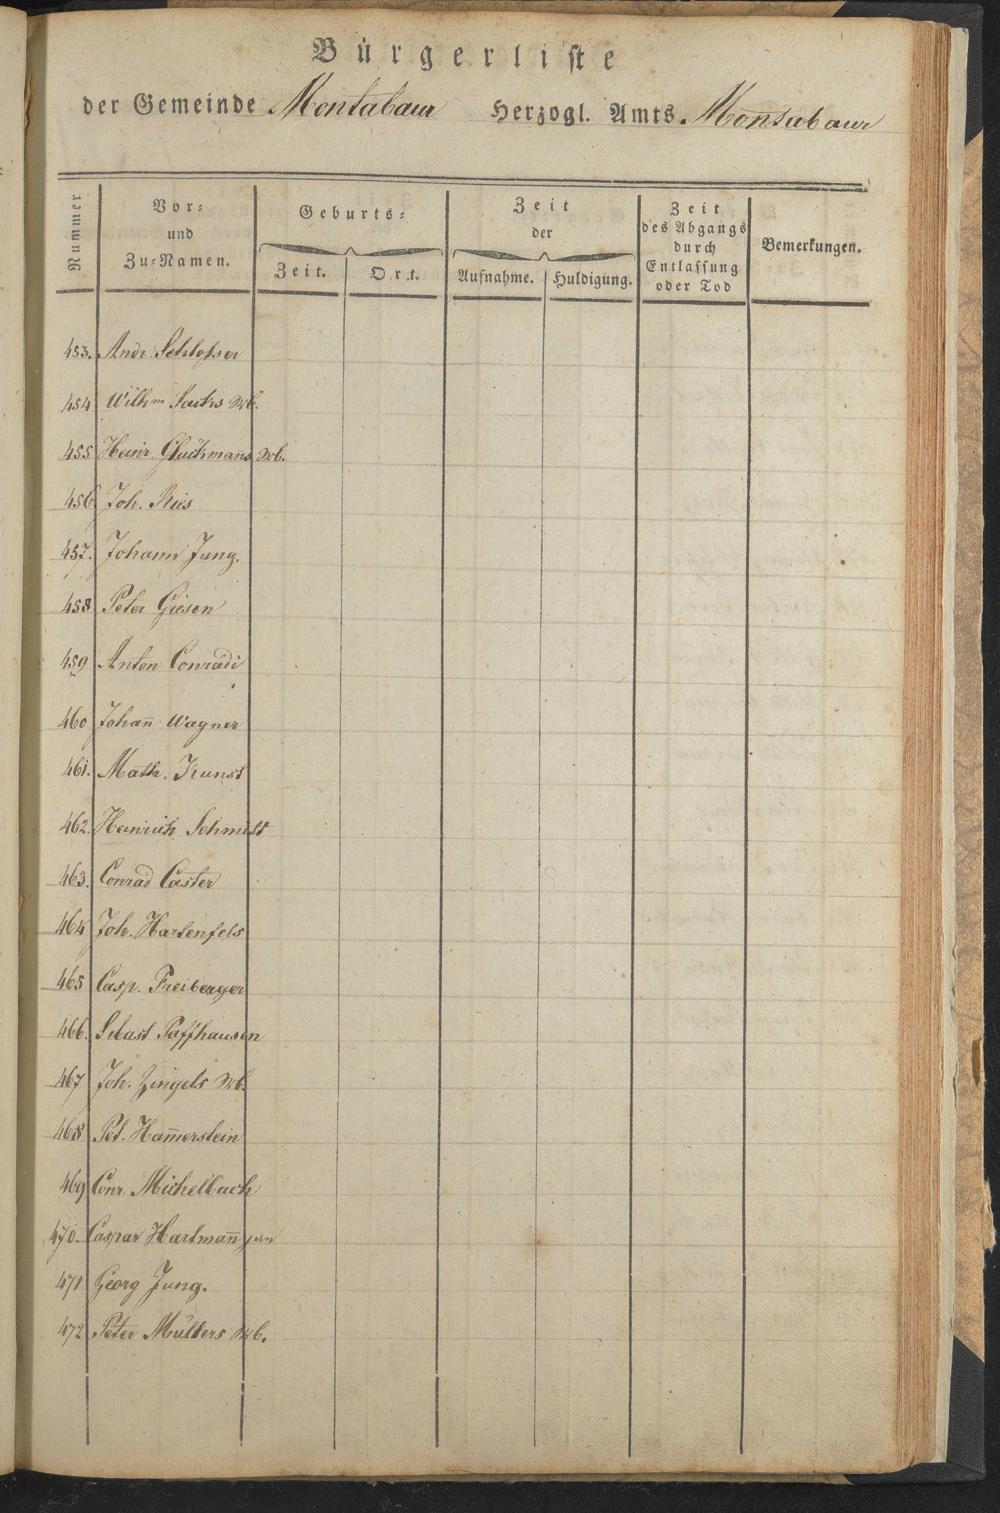 Bürgerliste
der Gemeinde Montabaur Herzogl. Amts Montabaur
Nummer
Vor=
und
Zu=Namen.
Geburts=
Zeit. Ort.
Zeit
der
Aufnahme. Huldigung.
Zeit
des Abgangs
durch
Entlassung
oder Tod
Bemerkungen.
453. Andr. Schlosser
454 Wilhm Sachs Wb.
455 Heinr. Glückmans Wb.
456 Joh. Ries
457. Johann Jung.
458 Peter Giesen
459 Anton Conradi
460 Johan̄ Wagner
461. Math. Kunst
462. Heinrich Schmidt
463. Conrad Caster
464 Joh. Hartenfels
465 Casp. Freiberger
466. Sebast Paffhausen
467 Joh. Zingels Wb.
468 Pet. Ham̄erstein
469 Conr. Michelbach
470. Caspar Hartman̄ jun
471 Georg Jung.
472 Peter Müllers Wb.